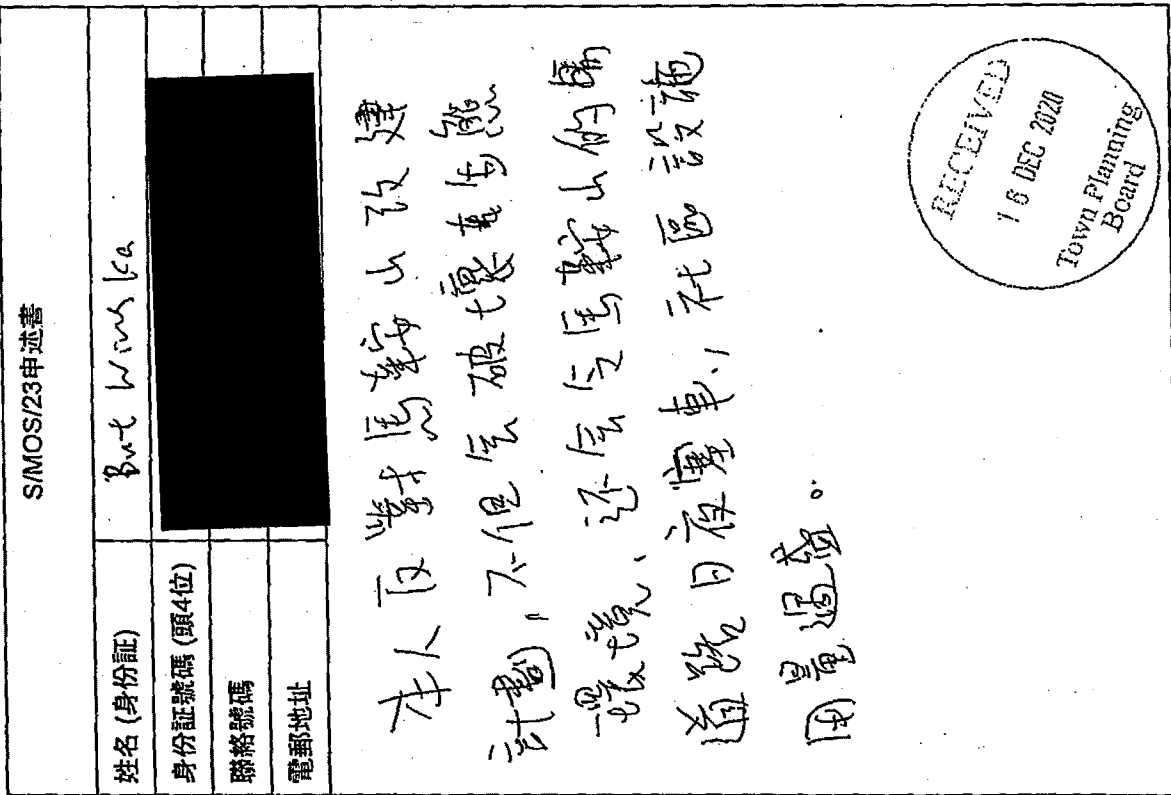 S/MOS/23申述書
姓名 (身份証) But Wing Ka
身份証號碼 (頭4位)
聯絡號碼
電郵地址
本人反對馬鞍山改建
計劃，不但会破壞生態
環境、还会令馬鞍山的
道路日夜塞車、社區設施
用量過
RECEIVED
16 DEC 2020
Town Planning
Board